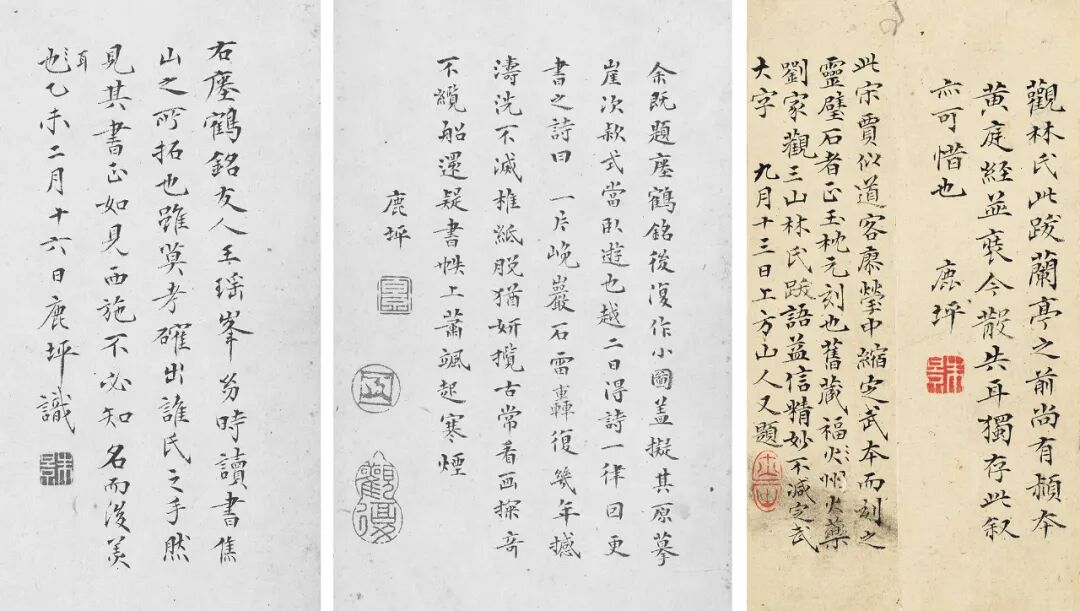 右瘞鶴銘友人王瑤峯時讀書焦
山之所拓也雖莫考確出誰氏之手然
見其書正如見西施不必知名而後美
也耳乙未二月十六日鹿坪識
余既題瘞鶴銘後復作小圖蓋擬其原摹
崖次款式當臥遊也越二日得詩一律因更
書之詩曰 一片峻巖石雷轟復幾年撼
濤洗不滅椎紙脫猶妍攬古常看画探奇
不纜船還疑書帙上蕭颯起寒煙
鹿坪
觀林氏此跋蘭亭之前尚有頴本
黃庭経並今散失耳獨存此叙
亦可惜也 鹿坪
此宋賈似道客廖瑩中縮定武本而刻之
靈璧石者正玉枕元刻也舊藏福火州火藥
劉家觀三山林氏跋語益信精妙不減定武
大字 九月十三日上方山人又題